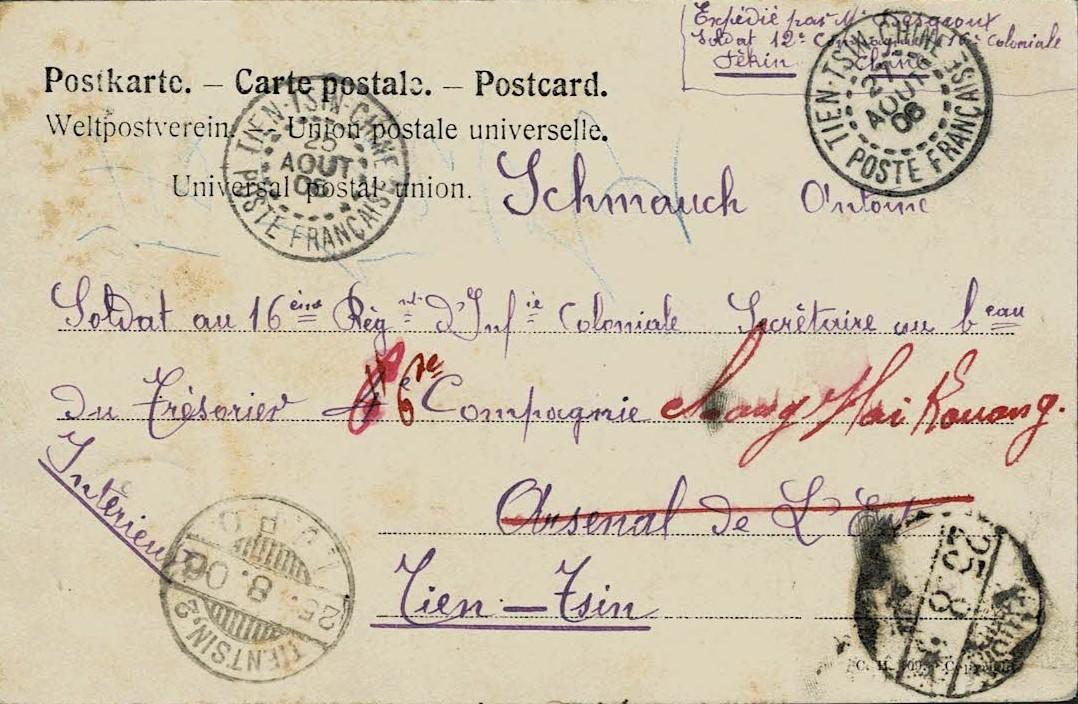 Expédié par Mr
Soldat 12e 16e Coloniale
Pékin Chine
Postkarte. – Carte postale. – Postcard.
Weltpostverein. – Union postale universelle.
Universal postal union.
TIEN-TSIN-CHINE
25
AOUT
06
POSTE FRANÇAISE
TIEN-TSIN-CHINE
27
AOUT
06
POSTE FRANÇAISE
Schmauch Antoine
Soldat au 16ème Règnt d'Infie Coloniale Secrêtaire au beau
du Trésorier 6e Compagnie Chang Hai Kouang.
Intérieur
Arsenal de L'Est
Tien – Tsin
I.J.P.O.
25.8.06
TIENTSIN.2
25
8
C. H. 109.